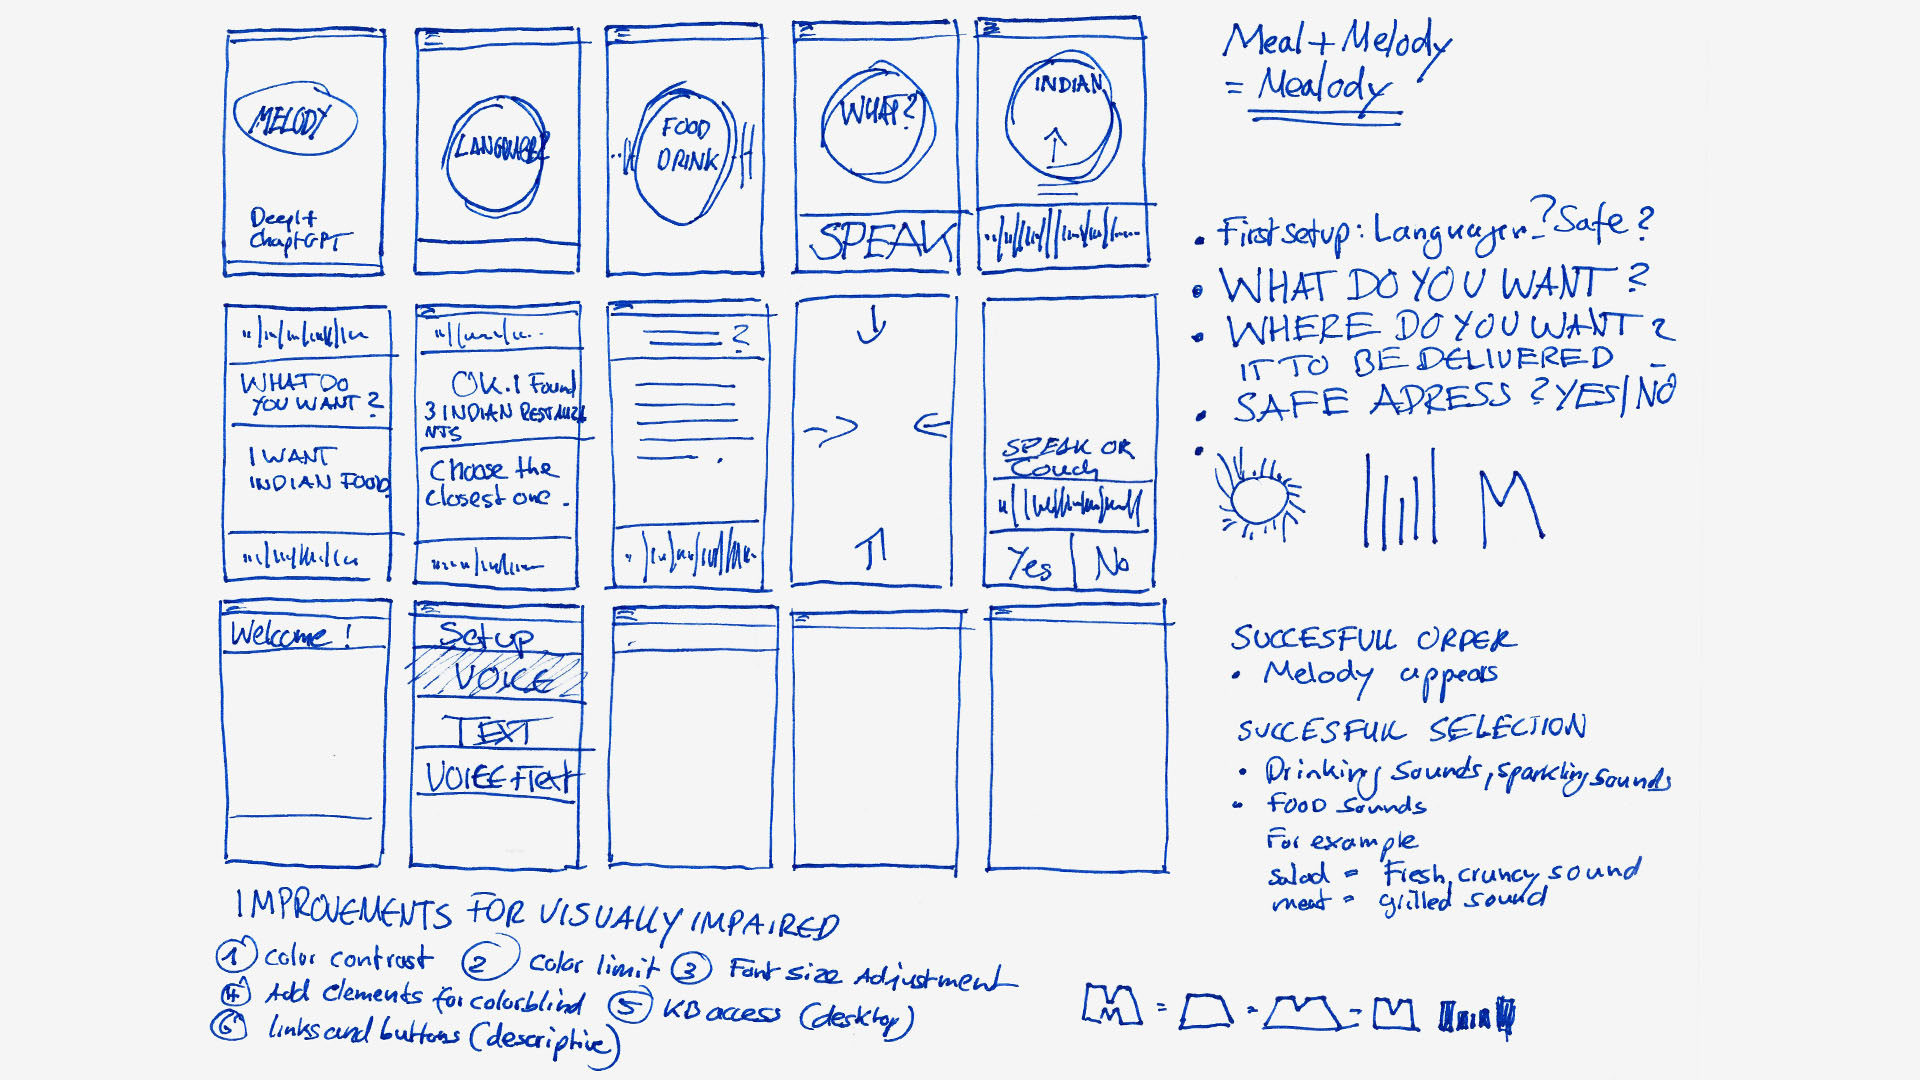 MELODY
Deepl +
ChaptGPT
LANGUAGE?
FOOD
DRINK
WHAT?
SPEAK
INDIAN
Meal + Melody
= Mealody
• First setup: Language? Safe?
• WHAT DO YOU WANT?
• WHERE DO YOU WANT
IT TO BE DELIVERED?
• SAFE ADRESS? YES/NO
M
WHAT DO
YOU WANT?
I WANT
INDIAN FOOD
OK. I Found
3 INDIAN RESTAURA
NTS
Choose the
closest one.
?
SPEAK OR
Touch
Yes
No
Welcome!
Setup
VOICE
TEXT
VOICE + Text
SUCCESFULL ORDER
• Melody appears
SUCCESFULL SELECTION
• Drinking sounds, sparkling sounds
• FOOD sounds
For example
salad = Fresh, cruncy sound
meat = grilled sound
IMPROVEMENTS FOR VISUALLY IMPAIRED
1 color contrast 2 color limit 3 Font size Adjustment
4 Add Elements for colorblind 5 KB access (desktop)
6 links and buttons (descriptive)